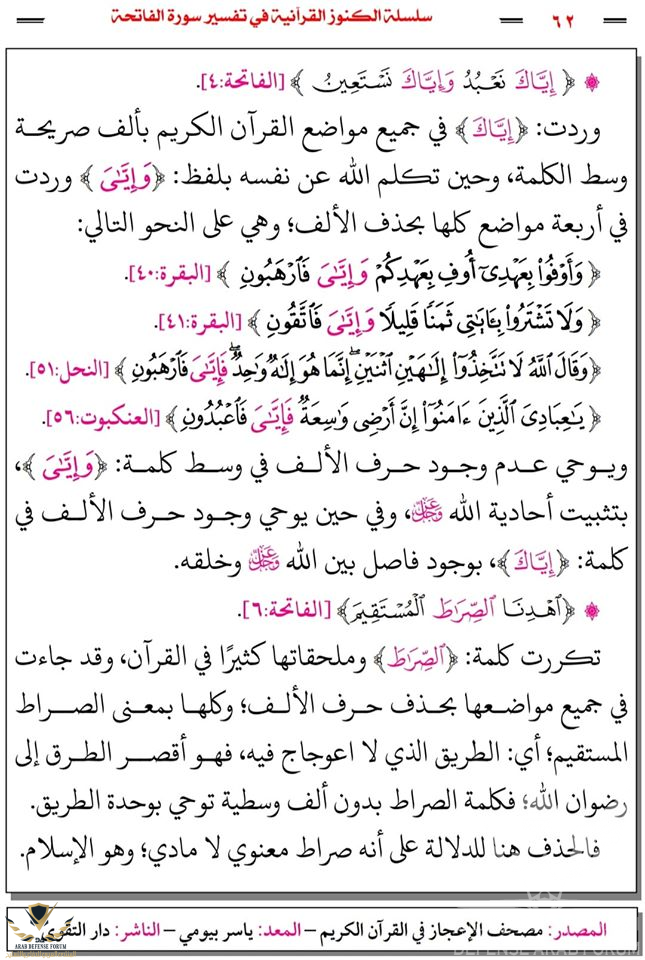 ٦٢ — سلسلة الكنوز القرآنية في تفسير سورة الفاتحة
﴿ إِيَّاكَ نَعْبُدُ وَإِيَّاكَ نَسْتَعِينُ ﴾ [الفاتحة:٤].
وردت: ﴿إِيَّاكَ﴾ في جميع مواضع القرآن الكريم بألف صريحة
وسط الكلمة، وحين تكلم الله عن نفسه بلفظ: ﴿وَإِيَّٰىَ ﴾ وردت
في أربعة مواضع كلها بحذف الألف؛ وهي على النحو التالي:
﴿ وَأَوْفُوا۟ بِعَهْدِىٓ أُوفِ بِعَهْدِكُمْ وَإِيَّٰىَ فَٱرْهَبُونِ ﴾ [البقرة:٤٠].
﴿ وَلَا تَشْتَرُوا۟ بِـَٔايَٰتِى ثَمَنًا قَلِيلًا وَإِيَّٰىَ فَٱتَّقُونِ ﴾ [البقرة:٤١].
﴿وَقَالَ ٱللَّهُ لَا تَتَّخِذُوٓا۟ إِلَٰهَيْنِ ٱثْنَيْنِ ۖ إِنَّمَا هُوَ إِلَٰهٌ وَٰحِدٌ ۖ فَإِيَّٰىَ فَٱرْهَبُونِ ﴾ [النحل:٥١].
﴿ يَٰعِبَادِىَ ٱلَّذِينَ ءَامَنُوٓا۟ إِنَّ أَرْضِى وَٰسِعَةٌ فَإِيَّٰىَ فَٱعْبُدُونِ ﴾ [العنكبوت:٥٦].
ويوحي عدم وجود حرف الألف في وسط كلمة: ﴿وَإِيَّٰىَ ﴾،
بتثبيت أحادية الله عَزَّ وَجَلَّ، وفي حين يوحي وجود حرف الألف في
كلمة: ﴿ إِيَّاكَ ﴾، بوجود فاصل بين الله عَزَّ وَجَلَّ وخلقه.
﴿ٱهْدِنَا ٱلصِّرَٰطَ ٱلْمُسْتَقِيمَ﴾ [الفاتحة:٦].
تكررت كلمة: ﴿ٱلصِّرَٰطَ﴾ وملحقاتها كثيرًا في القرآن، وقد جاءت
في جميع مواضعها بحذف حرف الألف؛ وكلها بمعنى الصراط
المستقيم؛ أي: الطريق الذي لا اعوجاج فيه، فهو أقصر الطرق إلى
رضوان الله؛ فكلمة الصراط بدون ألف وسطية توحي بوحدة الطريق.
فالحذف هنا للدلالة على أنه صراط معنوي لا مادي؛ وهو الإسلام.
المصدر: مصحف الإعجاز في القرآن الكريم – المعد: ياسر بيومي – الناشر: دار التقوى
ARAB DEFENSE FORUM
DEFENSE ARAB FORUM